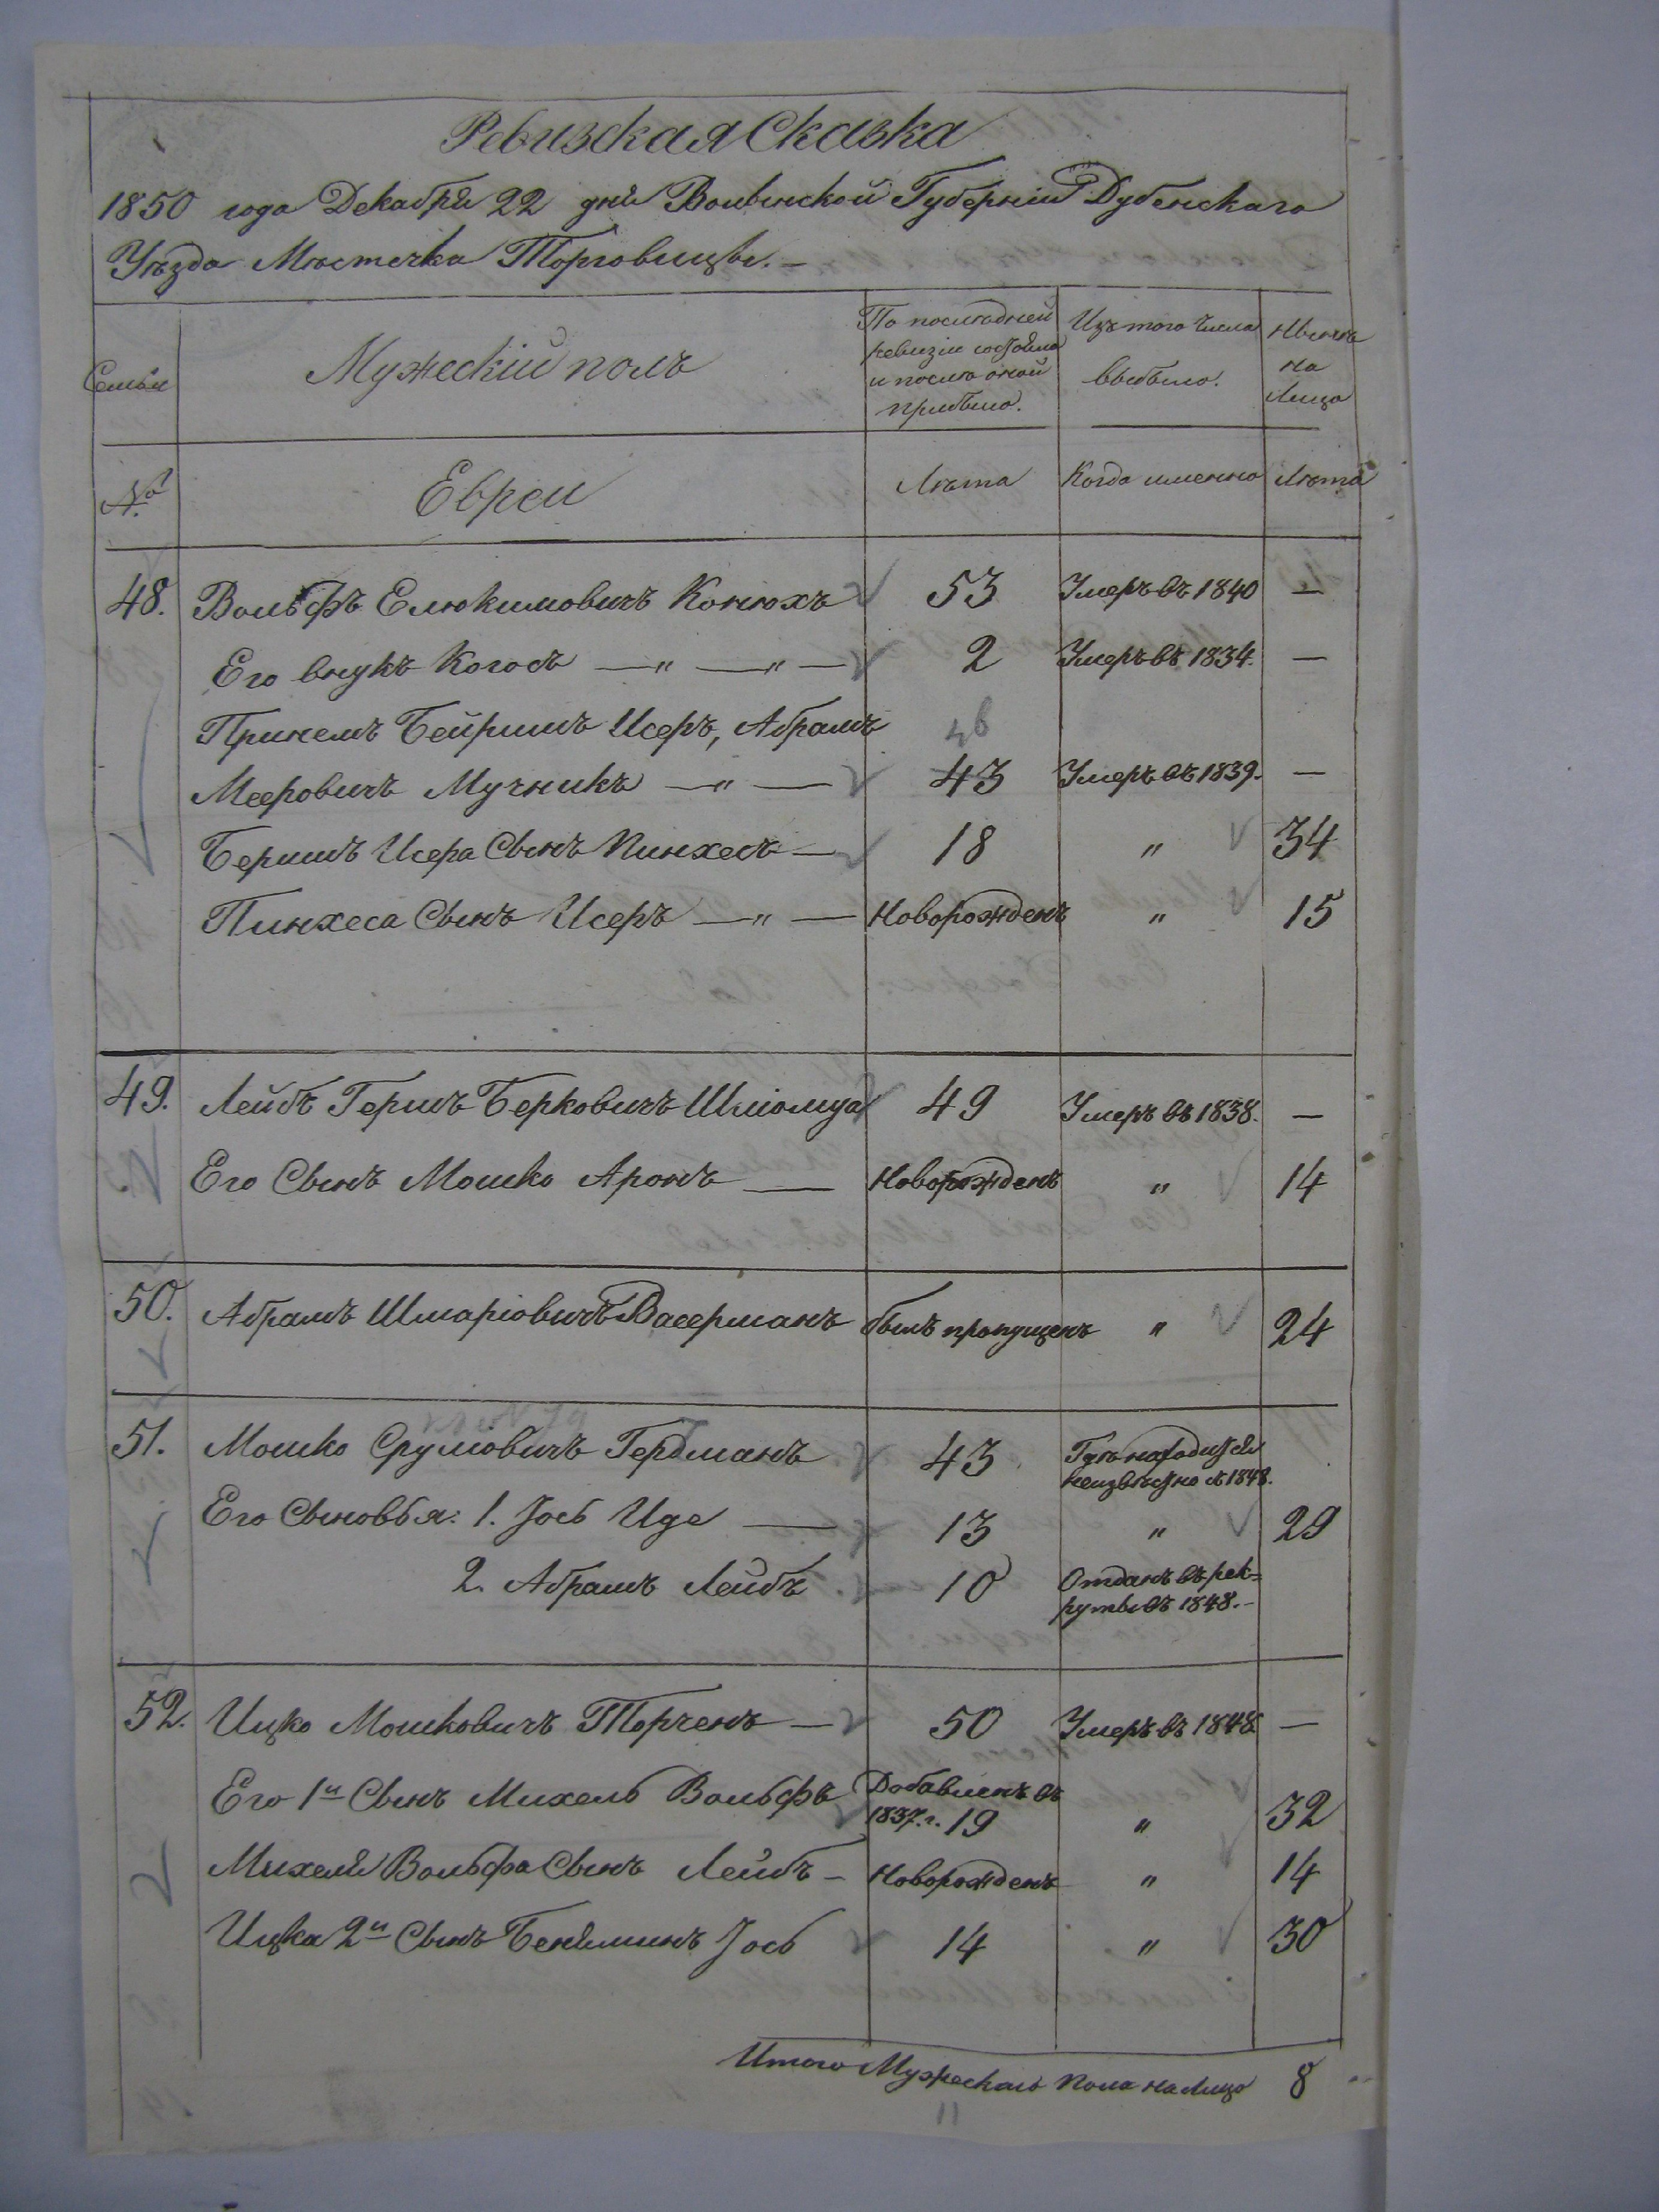 Ревизская Сказка
1850 года Декабря 22 дня Волынской Губернiи Дубенскаго
Уѣзда Мѣстечка Торговицы.—
Семьи
Мужескiй полъ
По послѣдней
ревизiи состояло
и послѣ оной
прибыло.
Изъ того числа
выбыло.
Нынѣ
на
лицо
№
Евреи
Лѣта
Когда именно
Лѣта
48. Вольфъ Елюкимовичъ Конюхъ 53 Умеръ въ 1840 —
Его внукъ Когосъ —"— —"— 2 Умеръ въ 1834. —
Принемъ Бейришъ Исеръ, Абрамъ
Мееровичъ Мучникъ —"— 43 Умеръ въ 1839. —
Беришъ Исера Сынъ Пинхесъ — 18 " 34
Пинхеса Сынъ Исеръ —"— Новорожденъ " 15
49. Лейбъ Гершъ Берковичъ Шлiомуа 49 Умеръ въ 1838. —
Его Сынъ Мошко Аронъ — Новорожденъ " 14
50. Абрамъ Шмарiовичъ Васерманъ былъ пропущенъ " 24
51. Мошко Срулiовичъ Гердманъ 43 Гдѣ находится
неизвѣстно съ 1848.
Его Сыновья: 1. Iось Иде — 13 " 29
2. Абрамъ Лейбъ 10 Отданъ въ рек=
руты въ 1848.—
52. Ицко Мошковичъ Торченъ — 50 Умеръ въ 1848 —
Его 1й Сынъ Михель Вольфъ Добавленъ въ
1837.г. 19 " 32
Михеля Вольфа Сынъ Лейбъ — Новорожденъ " 14
Ицка 2й Сынъ Беняминъ Iось 14 " 30
Итого Мужескаго пола на лицо 8
11